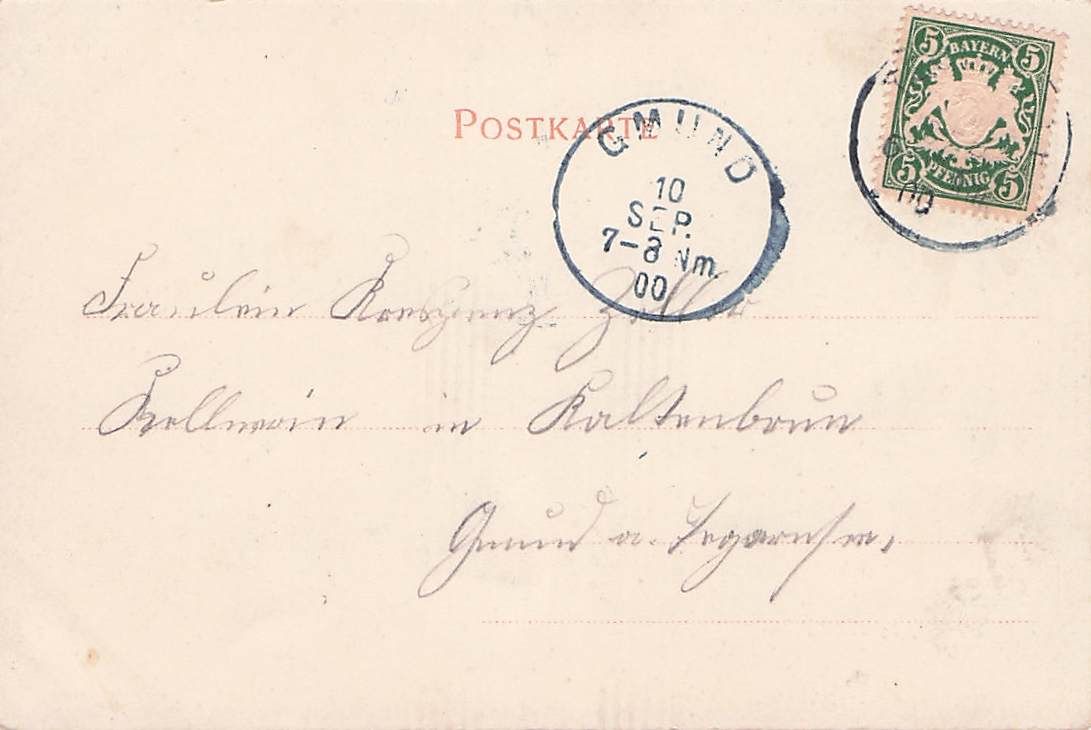 5 BAYERN 5
PFENNIG 5
00
POSTKARTE
GMUND
10
SEP.
7-8 Nm.
00
Fräulein Kreszenz Zoller
Kellnerin in Kaltenbrun
Gmund a. Tegernsee.